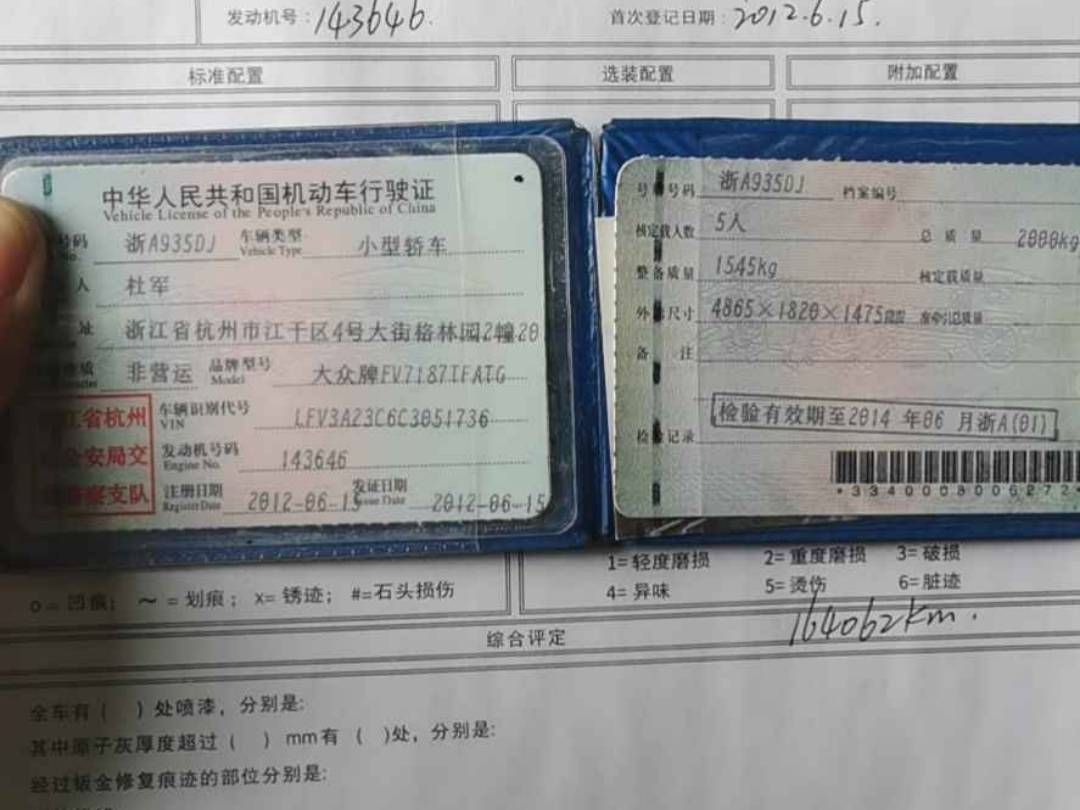 发动机号：143646.
首次登记日期：2012.6.15.
标准配置
选装配置
附加配置
中华人民共和国机动车行驶证
Vehicle License of the People's Republic of China
号码 浙A935DJ 车辆类型 小型轿车
No. Vehicle Type
人 杜军
址 浙江省杭州市江干区4号大街格林园2幢20
非营运 品牌型号 大众牌FV7187TFATG
Model
江省杭州
公安局交
警察支队
车辆识别代号 LFV3A23C6C3051736
VIN
发动机号码 143646
Engine No.
注册日期 2012-06-15 发证日期 2012-06-15
Register Date Issue Date
号 号码 浙A935DJ 档案编号
核定载人数 5人 总质量 2000kg
整备质量 1545kg 核定载质量
外 尺寸 4865×1820×1475mm
备 注
检验有效期至2014 年06 月浙A(01)
检 记录
*3340008006272*
o= 凹痕； ～ = 划痕； x= 锈迹； #=石头损伤
1= 轻度磨损 2= 重度磨损 3= 破损
4= 异味 5= 烫伤 6= 脏迹
164062km.
综合评定
全车有（ ）处喷漆，分别是:
其中原子灰厚度超过（ ）mm有（ )处，分别是:
经过钣金修复痕迹的部位分别是: